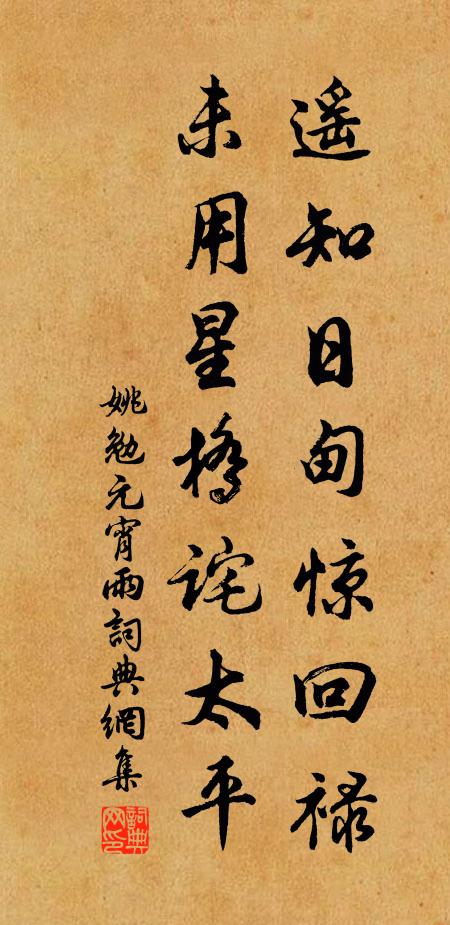 遥知日甸惊回禄
未用星桥诧太平
姚勉元宵雨詞典網集
詞典网印